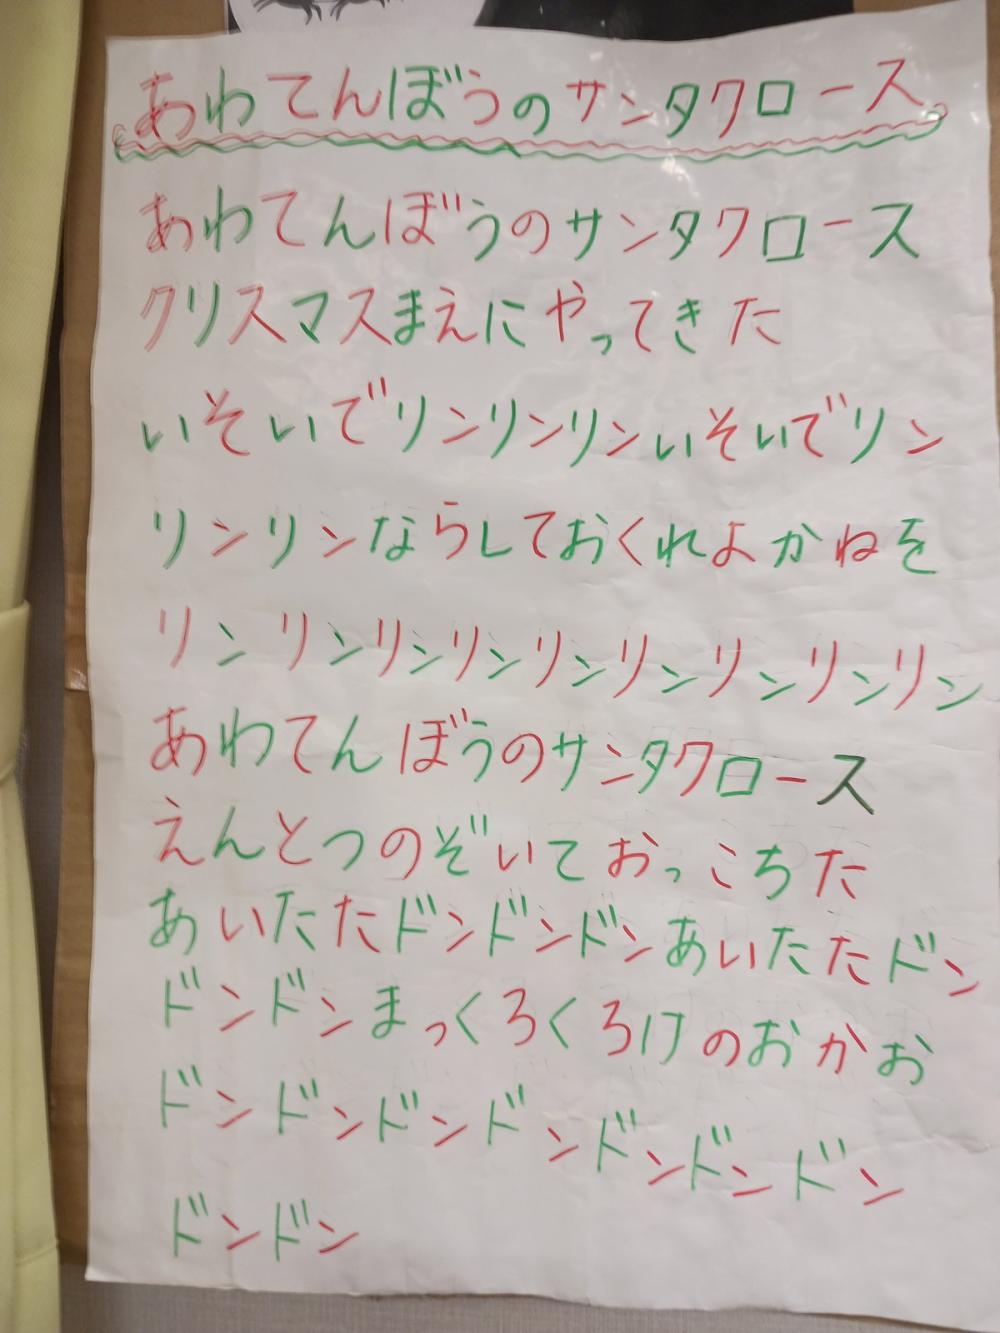 あわてんぼうのサンタクロース
あわてんぼうのサンタクロース
クリスマスまえにやってきた
いそいでリンリンリンいそいでリン
リンリンならしておくれよかねを
リンリンリンリンリンリンリンリンリン
あわてんぼうのサンタクロース
えんとつのぞいておっこちた
あいたたドンドンドンあいたたドン
ドンドンまっくろくろけのおかお
ドンドンドンドンドンドンドン
ドンドン